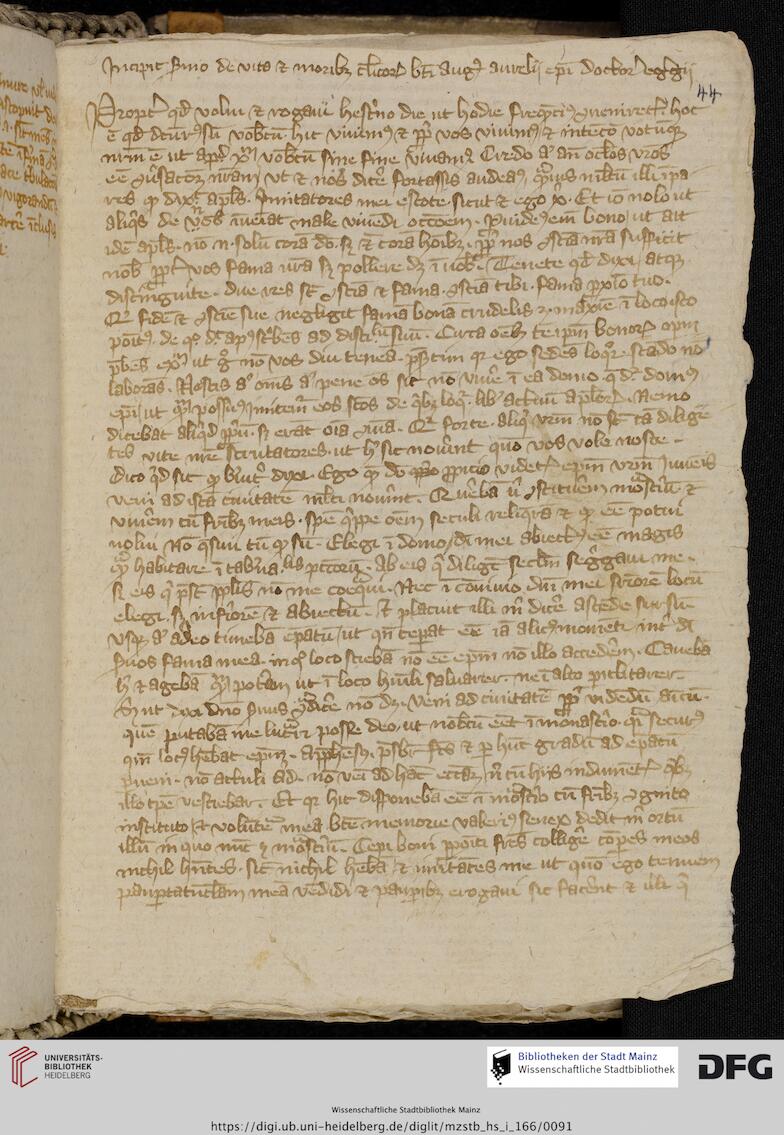 Incipit sermo de vita et moribus clericorum beati augustini aurelii episcopi doctoris egregii
44
Propter quod volui et rogavi hesterno die ut hodie frequentius conveniretis hoc
est quod dicturus sum vobiscum hic vivimus et propter vos vivimus et intentio votumque
nostrum est ut apud christum vobiscum sine fine vivamus Credo autem ante oculos vestros
esse conversationem nostram ut et nos dicere fortassis audeamus quamvis multum illi impa
res quod dixit apostolus Imitatores mei estote sicut et ego christi Et ideo nolo ut
aliquis de vobis inveniat male vivendi occasionem Providemus enim bona ut ait
idem apostolus non solum coram deo sed et coram hominibus propter nos conscientia nostra sufficit
nobis propter vos fama nostra sed pollere debet in vobis Tenete quod dixi atque
distinguite due res sunt conscientia et fama conscientia tibi fama proximo tuo
Qui fidens conscientie sue negligit famam bonam crudelis est maxime in loco isto
positus de quo dicit apostolus scribens ad discipulum suum Circa omnes te ipsum bonorum operum
prebens exemplum ut ergo non vos diu teneam presertim quia ego sedens loquor stando vos
laboratis Nostis autem omnes aut pene omnes sic nos vivere in ea domo que dicitur domus
episcopi ut quantum possumus imitemur eos sanctos de quibus loquitur liber actuum apostolorum Nemo
dicebat aliquid proprium sed erant omnia communia Qui forte aliqui vestrum non sunt tam diligen
tes vite nostre scrutatores ut hoc sic noverint quomodo vos volo nosse
Dico quid sit quod breviter dixi Ego quem deo propicio videtis episcopum vestrum Iuvenis
veni ad istam civitatem multi noverunt Querebam ubi constituerem monasterium et
viverem cum fratribus meis spem quippe omnem seculi reliqueram et quod esse potui
nolui Nec quesivi tamen quod sum Elegi in domo dei mei abiectus esse magis
quam habitare in tabernaculis peccatorum Ab eis qui diligunt seculum segregavi me
sed eis qui presunt populis non me coequavi Nec in convivio domini mei superiorem locum
elegi sed inferiorem et abiectum Et placuit illi mihi dicere ascende sursum
Usque autem adeo timebam episcopatum ut quoniam ceperat esse iam alicuius momenti inter dei
servos fama mea in quo loco sciebam non esse episcopum non illo accederem Cavebam
hoc et agebam quantum poteram ut in loco humili salvarer ne in alto periclitarer
Sed ut dixi domino servus contradicere non debet veni ad civitatem propter videndum amicum
quem putabam me lucrari posse deo ut nobiscum esset in monasterio quasi securus
quoniam locus habebat episcopum Apprehensus presbiter factus et per hunc gradum ad episcopatum
perveni non attuli aliquid non veni ad hanc ecclesiam nisi cum hiis indumentis quibus
illo tempore vestiebar Et quia hic disponebam esse in monasterio cum fratribus cognito
instituto et voluntate mea beate memorie valerius senex dedit mihi ortum
illum in quo nunc est monasterium Cepi boni propositi fratres colligere compares meos
nichil habentes sicut nichil habebam et imitantes me ut quomodo ego tenuem
paupertatunculam meam vendidi et pauperibus erogavi sic facerent et illi qui
UNIVERSITÄTS-
BIBLIOTHEK
HEIDELBERG
Bibliotheken der Stadt Mainz
Wissenschaftliche Stadtbibliothek
DFG
Wissenschaftliche Stadtbibliothek Mainz
https://digi.ub.uni-heidelberg.de/diglit/mzstb_hs_i_166/0091